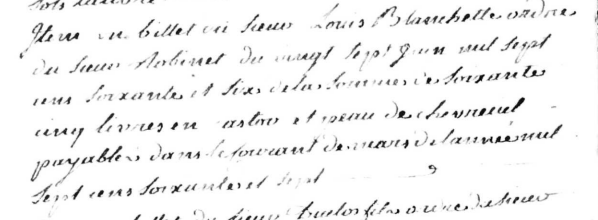 Item un billet du sieur Louis Blanchette ordre
du sieur Robinet du vingt sept Juin mil sept
cens soixante et six de la somme de soixante
cinq livres en castor et peau de chevreuil
payable dans le courant de mars de l'année mil
sept cens soixante et sept
billet du sieur fils ordre de sieur